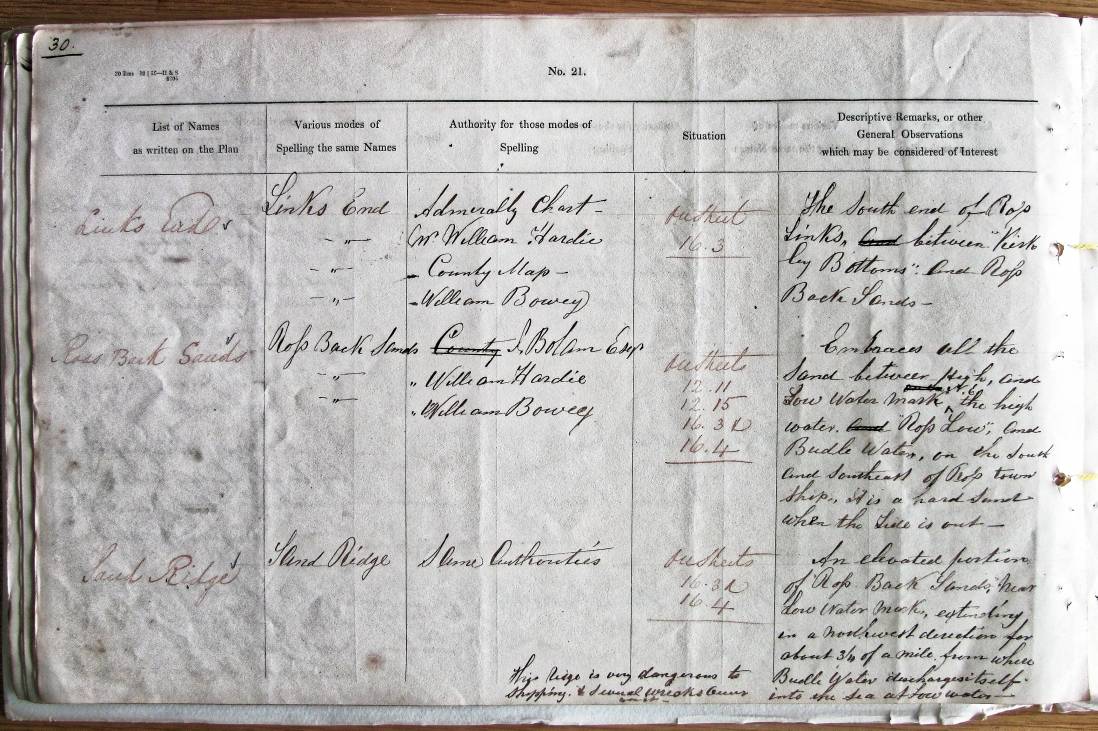 30.
No. 21.
List of Names
as written on the Plan
Various modes of
Spelling the same Names
Authority for those modes of
Spelling
Situation
Descriptive Remarks, or other
General Observations
which may be considered of Interest
Links End
Links End
Admiralty Chart -
on sheet
The South end of Ross
- " -
Mr William Hardie
16.3
Links, and between "Kirk
- " -
- County Map -
ley Bottoms". and Ross
- " -
- William Bowey
Back Sands -
Ross Back Sands
Ross Back Sands
County J. Bolam Esqr
on sheets
Embraces all the
- " -
" William Hardie
12.11
Sand between high, and
- " -
" William Bowey
12.15
Low Water Mark, the high
16.3 &
water. and "Ross Low", and
16.4
Budle Water, on the South
and Southeast of Ross town
ship, it is a hard Sand
when the tide is out -
Sand Ridge
Sand Ridge
Same Authorities
on sheets
An elevated portion
16.3 &
of Ross Back Sands, near
16.4
Low Water Mark, extending
in a northwest direction for
about 3/4 of a mile from where
Budle Water discharges itself
into the sea at low water -
This ridge is very dangerous to
Shipping. & Several wrecks